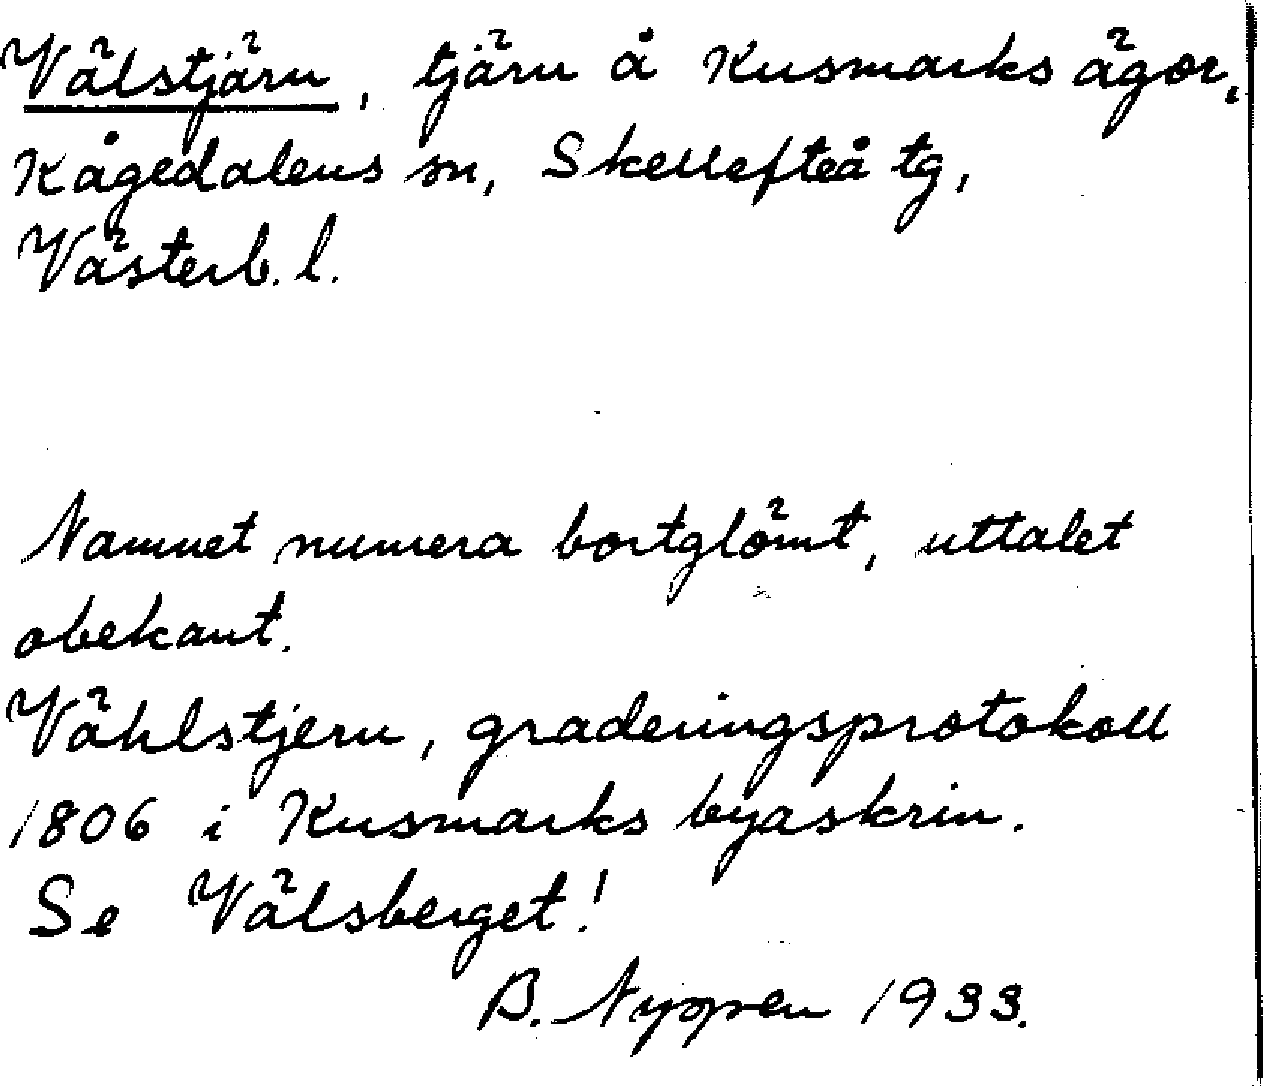 Välstjärn, tjärn å Kusmarks ägor,
Kågedalens sn, Skellefteå tg,
Västerb. l.
Namnet numera bortglömt, uttalet
obekant.
Vählstjern, graderingsprotokoll
1806 i Kusmarks byaskrin.
Se Välsberget!
B. 1933.